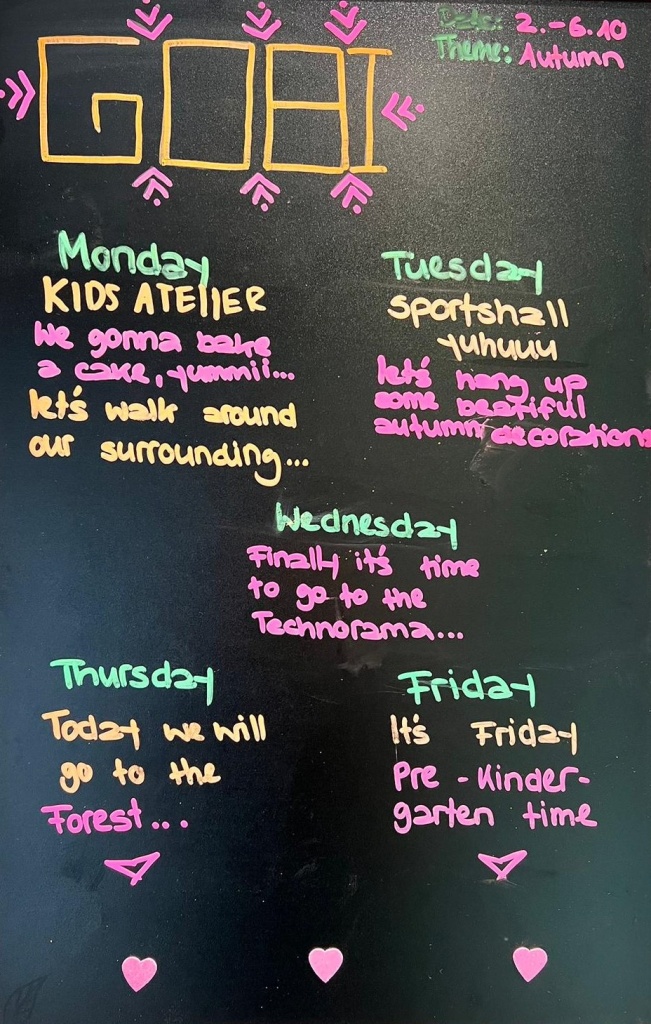 GOBI
Date: 2.-6.10
Theme: Autumn
Monday
KIDS ATELIER
We gonna bake
a cake, yummii...
let's walk around
our surrounding...
Tuesday
sportshall
yuhuuu
let's hang up
some beatiful
autumn decorations
Wednesday
Finally it's time
to go to the
Technorama...
Thursday
Today we will
go to the
Forest...
Friday
It's Friday
Pre-Kinder-
garten time